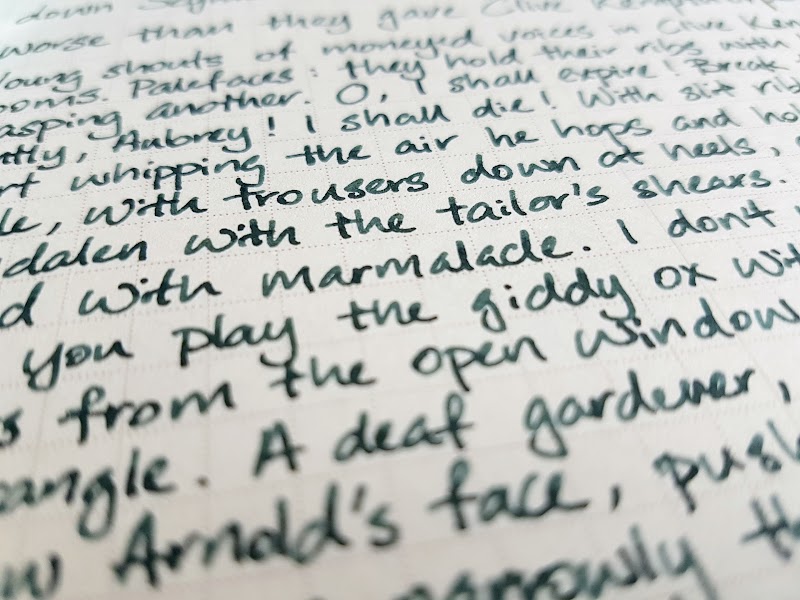 down
worse than they gave Clive
Young shouts of moneyed voices in Clive Kem
ooms. Palefaces: they hold their ribs with
asping another. O, I shall expire! Break
ntly, Aubrey! I shall die! With slit rib
rt whipping the air he hops and ho
le, with trousers down at heels,
dalen with the tailor's shears.
d with marmalade. I don't
you play the giddy ox wit
s from the open window
angle. A deaf gardener,
w Arnold's face, push
narrowly th